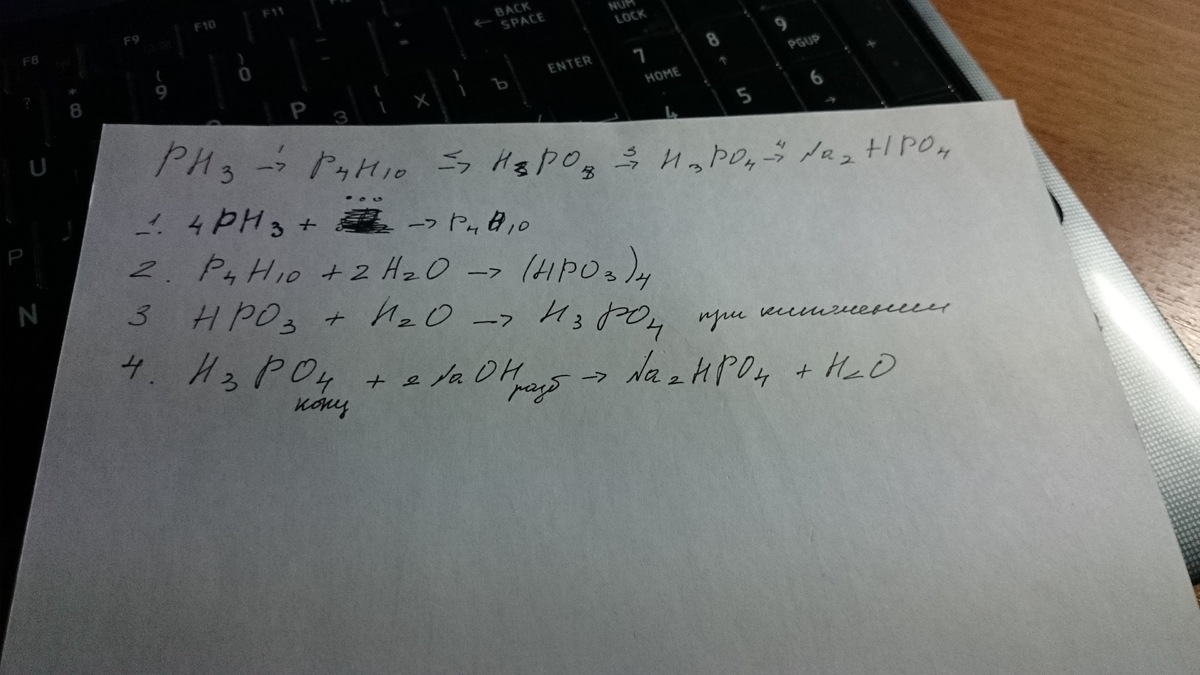 F8 F9 F10 F11 F12 BACK SPACE NUM LOCK
? * 8 ( 9 ) 0 - + = ENTER 7 HOME 8 9 PGUP +
U P З Х Ъ 4 5 6
P J
N
PH3 1→ P4H10 2→ H3PO3 3→ H3PO4 4→ Na2HPO4
1. 4PH3 + ... → P4H10
2. P4H10 + 2H2O → (HPO3)4
3 HPO3 + H2O → H3PO4 при кипячении
4. H3PO4 конц + 2NaOH разб → Na2HPO4 + H2O